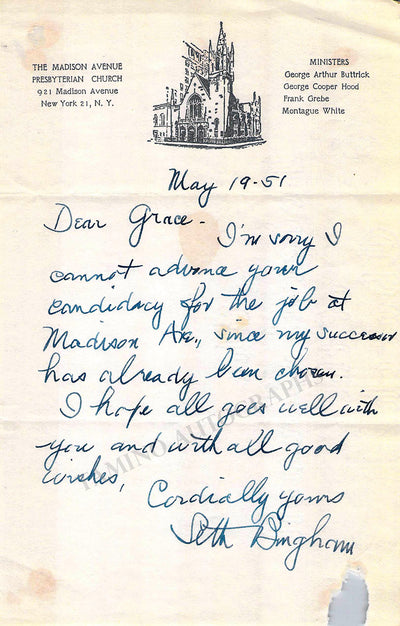 THE MADISON AVENUE
PRESBYTERIAN CHURCH
921 Madison Avenue
New York 21, N. Y.
MINISTERS
George Arthur Buttrick
George Cooper Hood
Frank Grebe
Montague White
May 19-51
Dear Grace-
I'm sorry I
cannot advance your
candidacy for the job at
Madison Ave., since my successor
has already been chosen.
I hope all goes well with
you and with all good
wishes,
Cordially yours
Seth Bingham
TAMINO AUTOGRAPHS